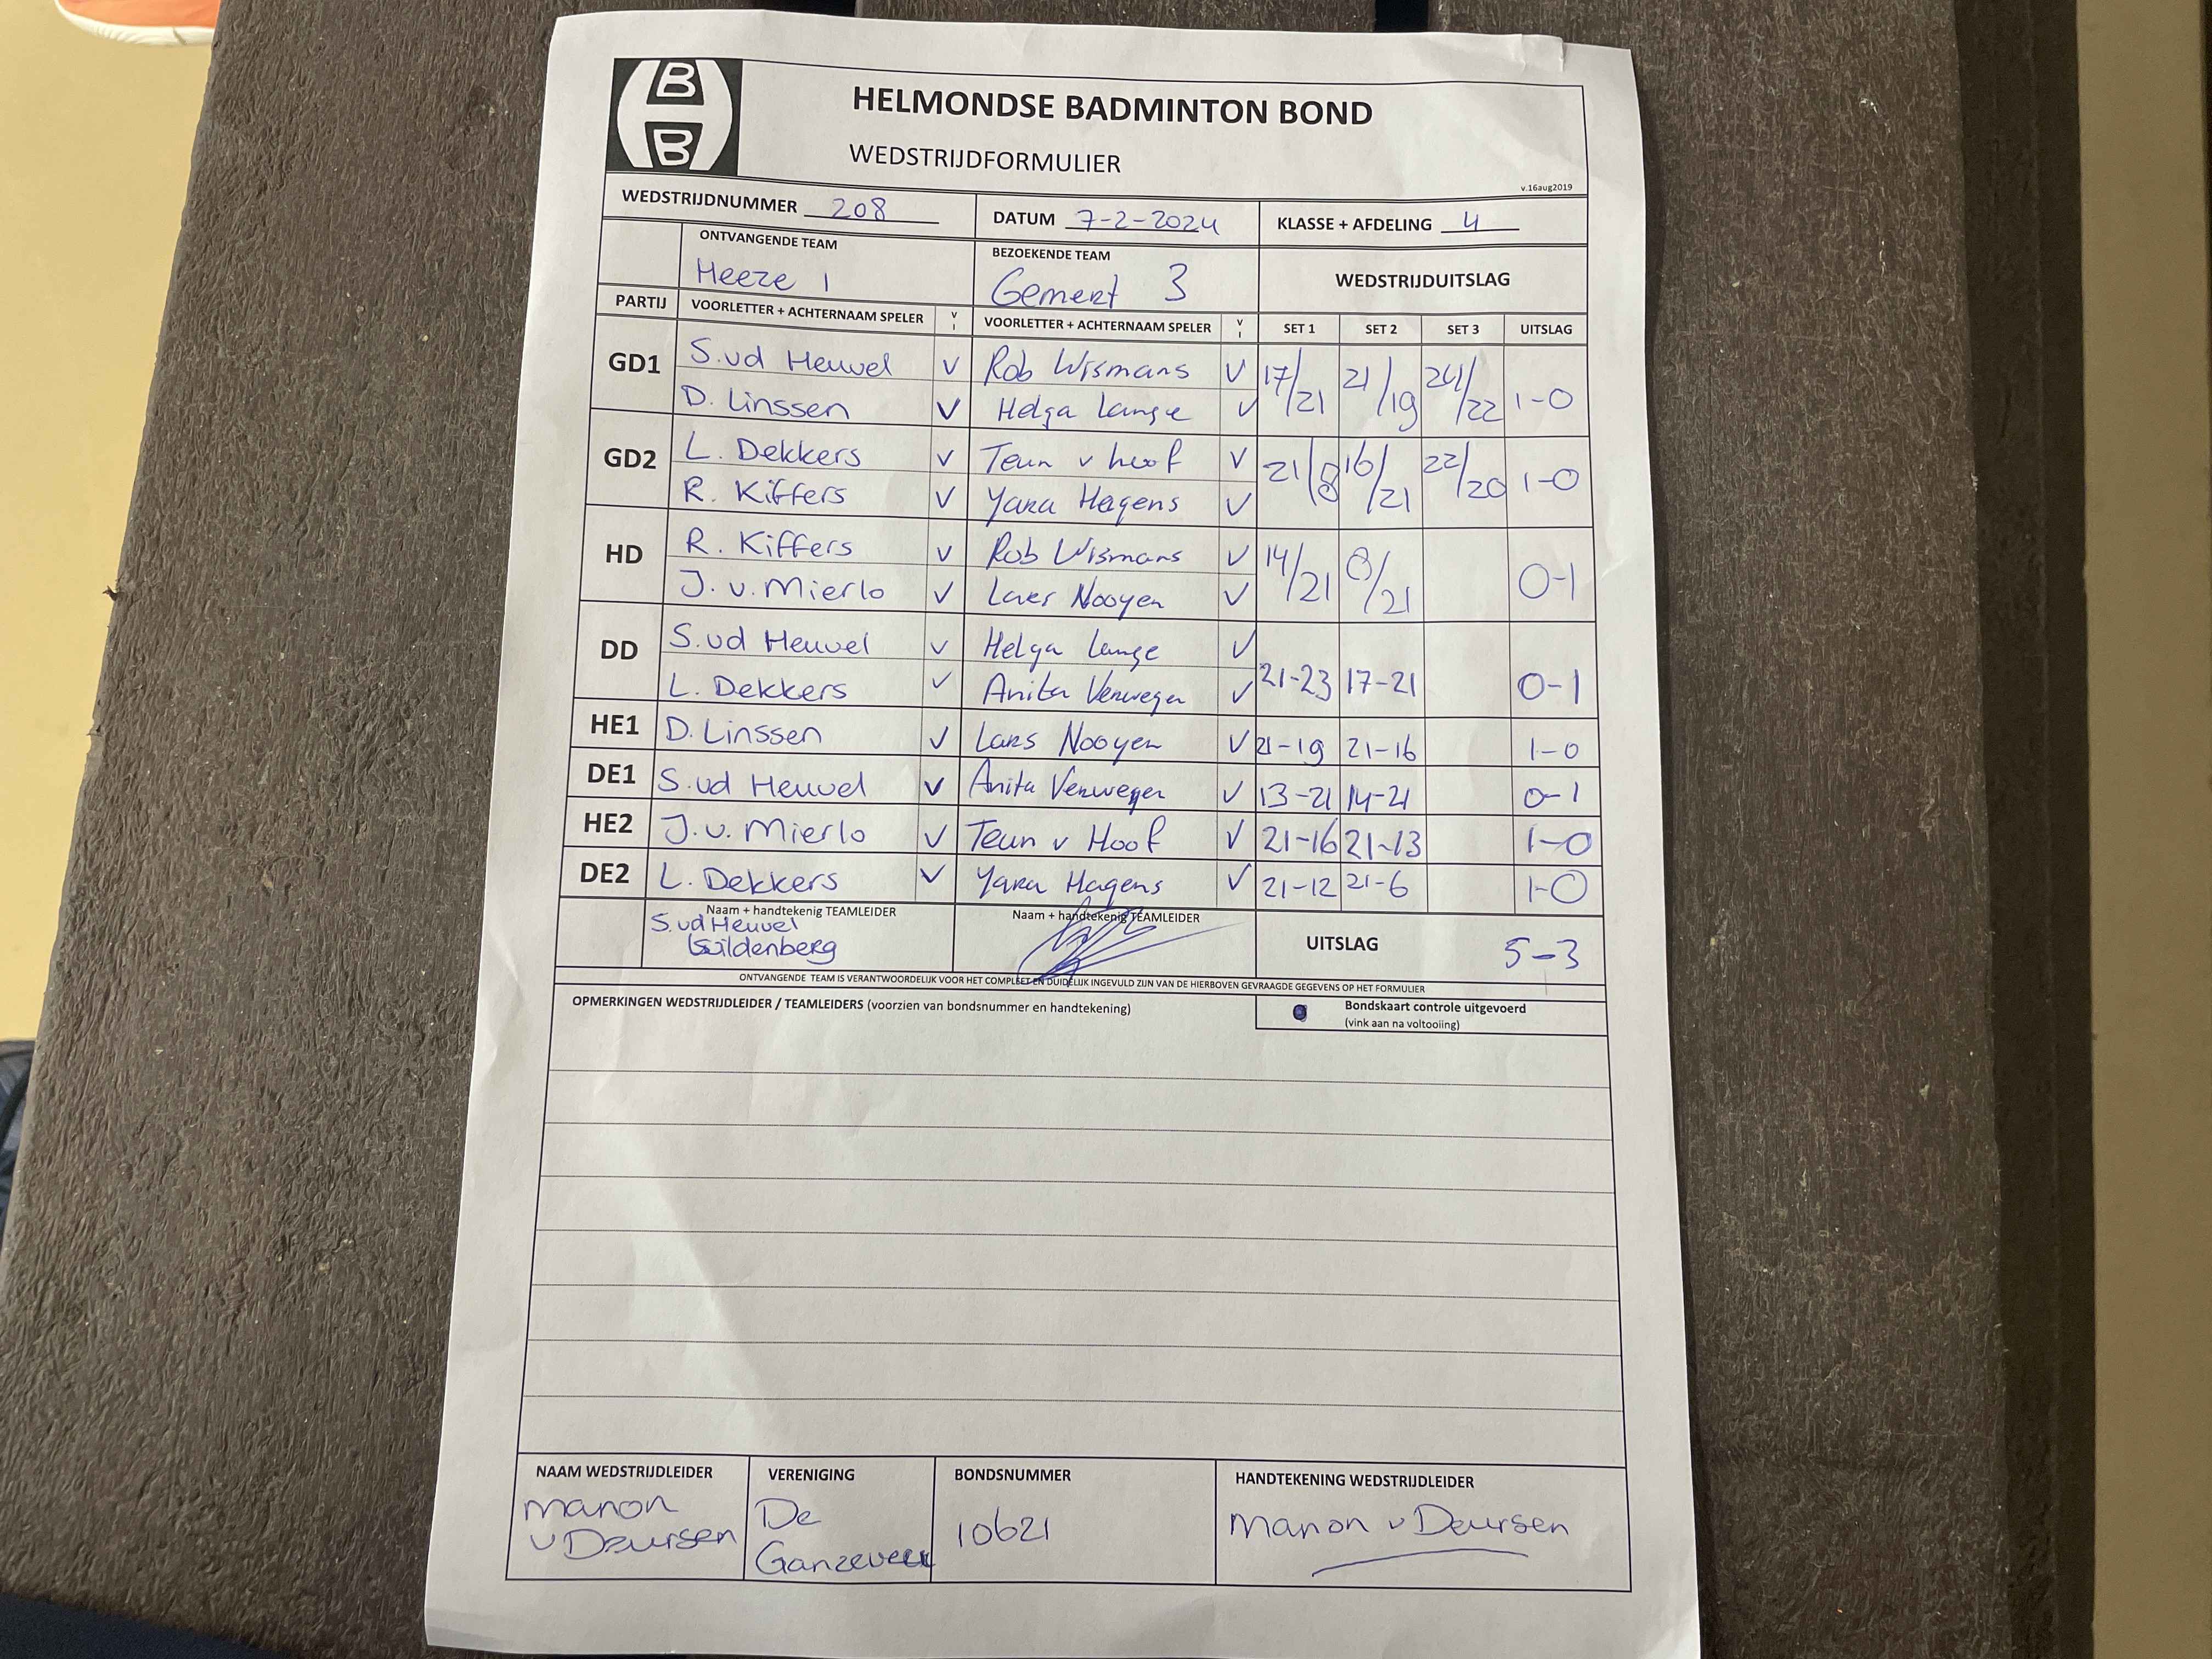 B
B
HELMONDSE BADMINTON BOND
WEDSTRIJDFORMULIER
v.16aug2019
WEDSTRIJDNUMMER 208 DATUM 7-2-2024 KLASSE + AFDELING 4
ONTVANGENDE TEAM BEZOEKENDE TEAM WEDSTRIJDUITSLAG
Heeze 1 Gemert 3
PARTIJ VOORLETTER + ACHTERNAAM SPELER V I VOORLETTER + ACHTERNAAM SPELER V I SET 1 SET 2 SET 3 UITSLAG
GD1 S.vd Heuvel V Rob Wismans V 17/21 21/19 24/22 1-0
D. Linssen V Helga Lange V
GD2 L. Dekkers V Teun v hoof V 21/8 16/21 22/20 1-0
R. Kiffers V Yara Hagens V
HD R. Kiffers V Rob Wismans V 14/21 8/21 0-1
J. v. Mierlo V Lars Nooyen V
DD S.vd Heuvel V Helga Lange V 21-23 17-21 0-1
L. Dekkers V Anita Verwegen V
HE1 D. Linssen V Lars Nooyen V 21-19 21-16 1-0
DE1 S.vd Heuvel V Anita Verwegen V 13-21 14-21 0-1
HE2 J. v. Mierlo V Teun v Hoof V 21-16 21-13 1-0
DE2 L. Dekkers V Yara Hagens V 21-12 21-6 1-0
Naam + handtekenig TEAMLEIDER Naam + handtekenig TEAMLEIDER
S.vd Heuvel UITSLAG 5-3
Gildenberg
ONTVANGENDE TEAM IS VERANTWOORDELIJK VOOR HET COMPLEET EN DUIDELIJK INGEVULD ZIJN VAN DE HIERBOVEN GEVRAAGDE GEGEVENS OP HET FORMULIER
OPMERKINGEN WEDSTRIJDLEIDER / TEAMLEIDERS (voorzien van bondsnummer en handtekening) Bondskaart controle uitgevoerd
(vink aan na voltooiing)
NAAM WEDSTRIJDLEIDER VERENIGING BONDSNUMMER HANDTEKENING WEDSTRIJDLEIDER
Manon De 10621 Manon v Deursen
v Deursen Ganzeveer